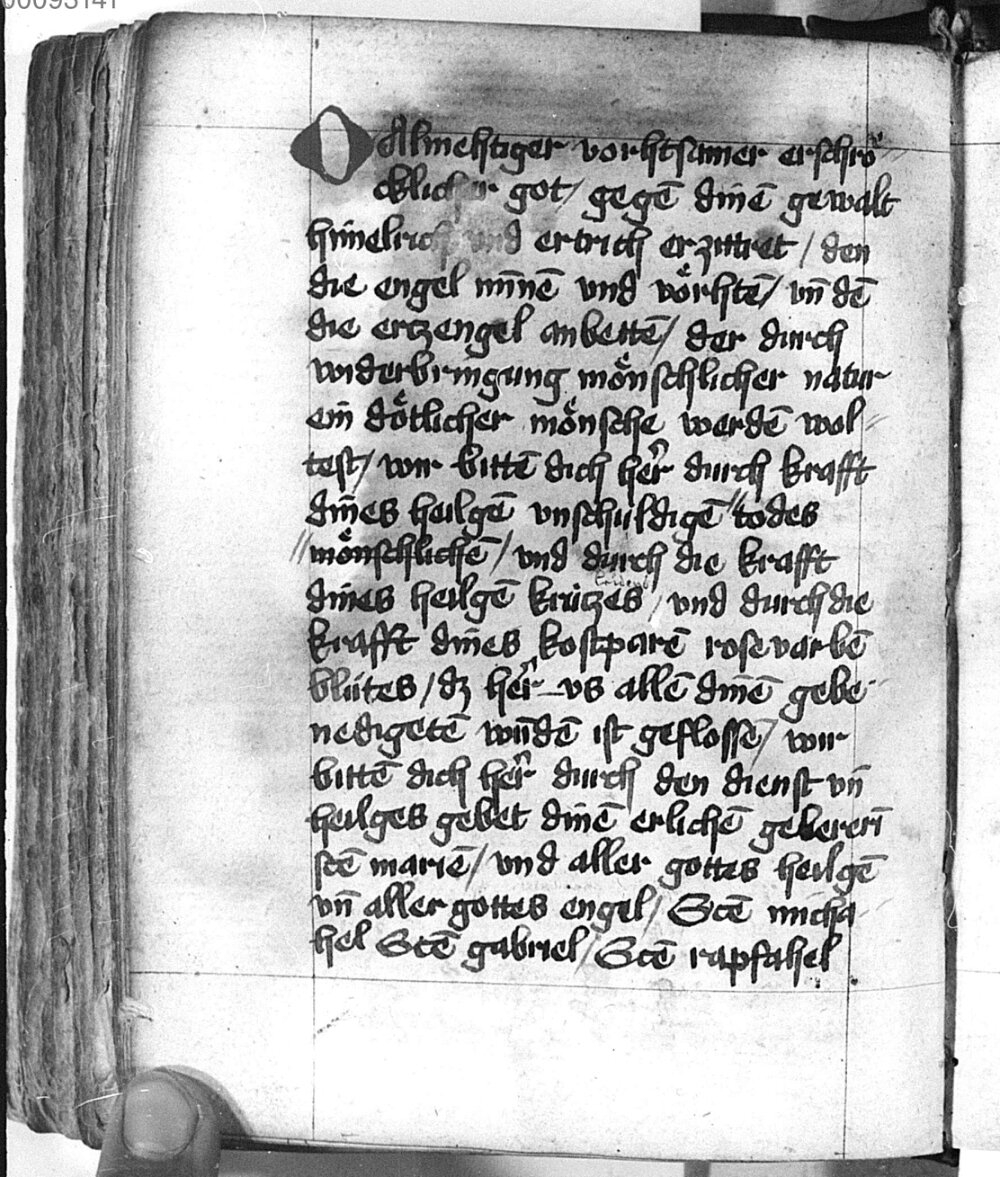 00093141
O Almehtiger vorhtsamer erschrö
cklicher got / gegē dinē gewalt
himelrich und ertrich erzittret / den
die engel mīnē vnd vörhtē / vn̄ dē
die ertzengel anbettē / der durch
widerbringung mönschlicher natur
ein dötlicher mönsche werdē wol
test / wir bittē dich her̄ durch krafft
dīnes heilgē vnschuldigē "todes
"mönschlichē / vnd durch die krafft
dines heilgē krützes / vnd durch die
krafft dines kostparē rosevarbē
blütes / dz her̄ vs allē dinē gebe
nedigetē wūdē ist geflossē / wir
bittē dich her̄ durch den dienst vn̄
heilges gebet dinē erlichē gebererī
stē mariē / vnd aller gottes heilgē
vn̄ aller gottes engel / Stē micha
hel Stē gabriel / Stē rapfahel